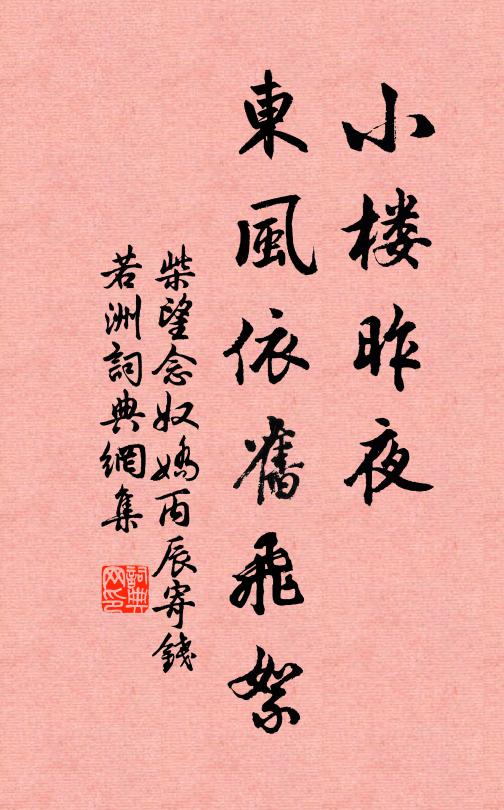 小楼昨夜
東風依舊飛絮
柴望念奴嬌丙辰寄錢
若洲詞典網集
詞典网印